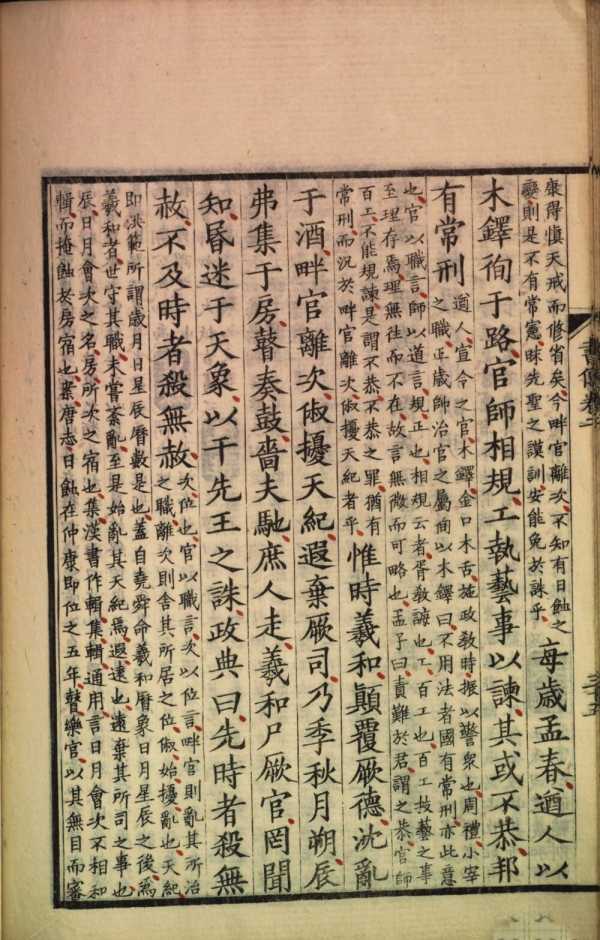 康得慎天戒而修省矣今畔官離次不知有日蝕之
變則是不有常憲昧先聖之謨訓安能免於誅乎
每歲孟春遒人以
木鐸徇于路官師相規工執藝事以諫其或不恭邦
有常刑
遒人宣令之官木鐸金口木舌施政教時振以警衆也周禮小宰
之職正歲帥治官之屬徇以木鐸曰不用法者國有常刑亦此意
也官以職言師以道言規正也相規云者胥教誨也工百工也百工技藝之事
至理存焉理無往而不在故言無微而可略也孟子曰責難於君謂之恭官師
百工不能規諫是謂不恭不恭之罪猶有
常刑而況於畔官離次俶擾天紀者乎
惟時羲和顛覆厥德沈亂
于酒畔官離次俶擾天紀遐棄厥司乃季秋月朔辰
弗集于房瞽奏鼓嗇夫馳庶人走羲和尸厥官罔聞
知昏迷于天象以干先王之誅政典曰先時者殺無
赦不及時者殺無赦
次位也官以職言次以位言畔官則亂其所治
之職離次則舍其所居之位俶始擾亂也天紀
即洪範所謂歲月日星辰曆數是也蓋自堯舜命羲和曆象日月星辰之後爲
羲和者世守其職未嘗紊亂至是始亂其天紀焉遐遠也遠棄其所司之事也
辰日月會次之名房所次之宿也集漢書作輯集輯通用言日月會次不相和
輯而掩蝕於房宿也案唐志日蝕在仲康即位之五年瞽樂官以其無目而審